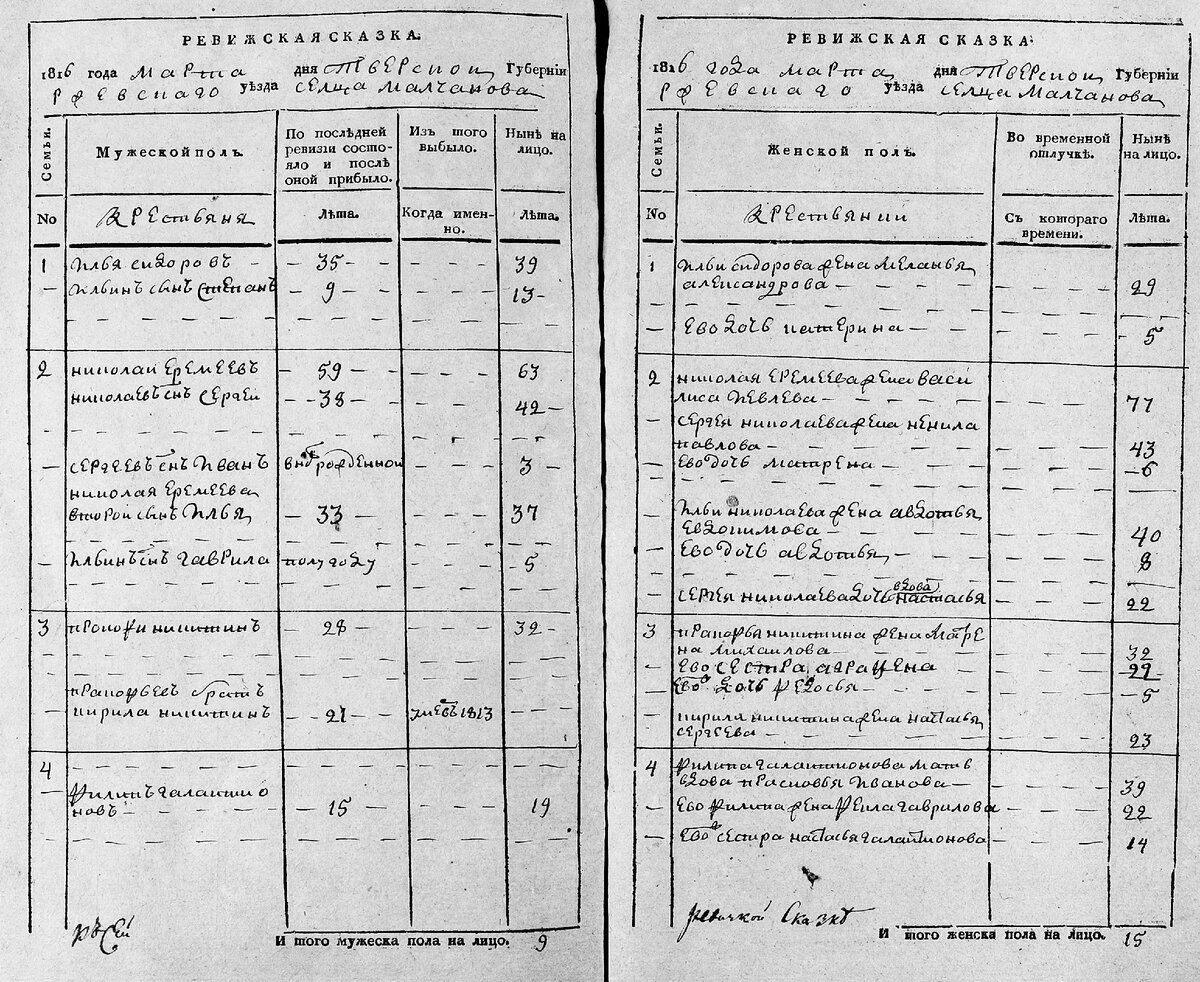 РЕВИЖСКАЯ СКАЗКА.
1816 года марта дня Тверской Губерніи
Ржевскаго уѣзда селца Малчанова
Семьи.
Мужеской полъ.
По послѣдней ревизіи состояло и послѣ оной прибыло.
Изъ того выбыло.
Нынѣ на лицо.
No
Крестьяня
Лѣта.
Когда именно.
Лѣта.
1 Илья Сидоровъ 35 39
Ильинъ сынъ Степанъ 9 13
2 Николай Еремеевъ 59 63
Николаевъ снъ Сергей 38 42
Сергеевъ снъ Иванъ вно рожденной 3
Николая Еремеева
второй сынъ Илья 33 37
Ильинъ снъ Гаврила полугоду 5
3 Прокофи Никитинъ 28 32
Прокофьевъ братъ
Кирила Никитинъ 21 умевъ 1813
4
Филипъ Галактио
новъ 15 19
И того мужеска пола на лицо. 9
РЕВИЖСКАЯ СКАЗКА.
1816 года марта дня Тверской Губерніи
Ржевскаго уѣзда селца Малчанова
Семьи.
Женской полъ.
Во временной отлучкѣ.
Нынѣ на лицо.
No
Крестьянки
Съ котораго времени.
Лѣта.
1 Ильи Сидорова жена Меланья
Александрова 29
Ево дочь Катерина 5
2 Николая Еремеева жена Васи
лиса Певлева 77
Сергея Николаева жена Ненила
Павлова 43
Ево дочь Матрена 6
Ильи Николаева жена Авдотья
Евдокимова 40
Ево дочь Авдотья 8
вдова
Сергея Николаева дочь Настасья 22
3 Прокофья Никитина жена Маре
на Михаилова 32
Ево сестра Авражена 29
Ево дочь Федосья 5
Кирила Никитина жена Настасья
Сергеева 23
4 Филипа Галактионова мать
вдова Прасковья Иванова 39
Ево Филипа жена Фекла Гаврилова 22
Ево сестра Настасья Галактионова 14
ревижкой Сказкѣ
И того женска пола на лицо. 15